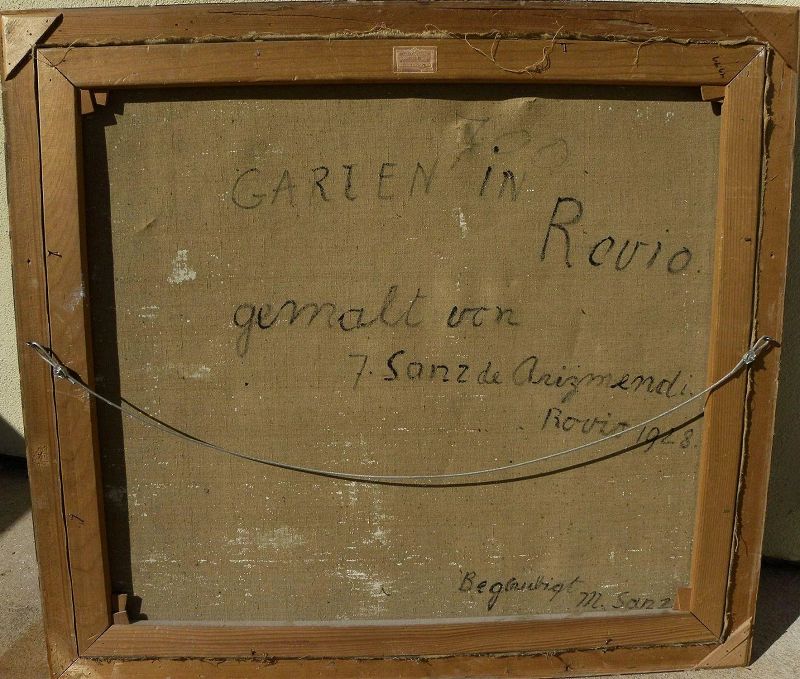 GARTEN IN
Rovio.
gemalt von
J. Sanz de Arizmendi.
Rovio 1928.
Beglaubigt
M. Sanz